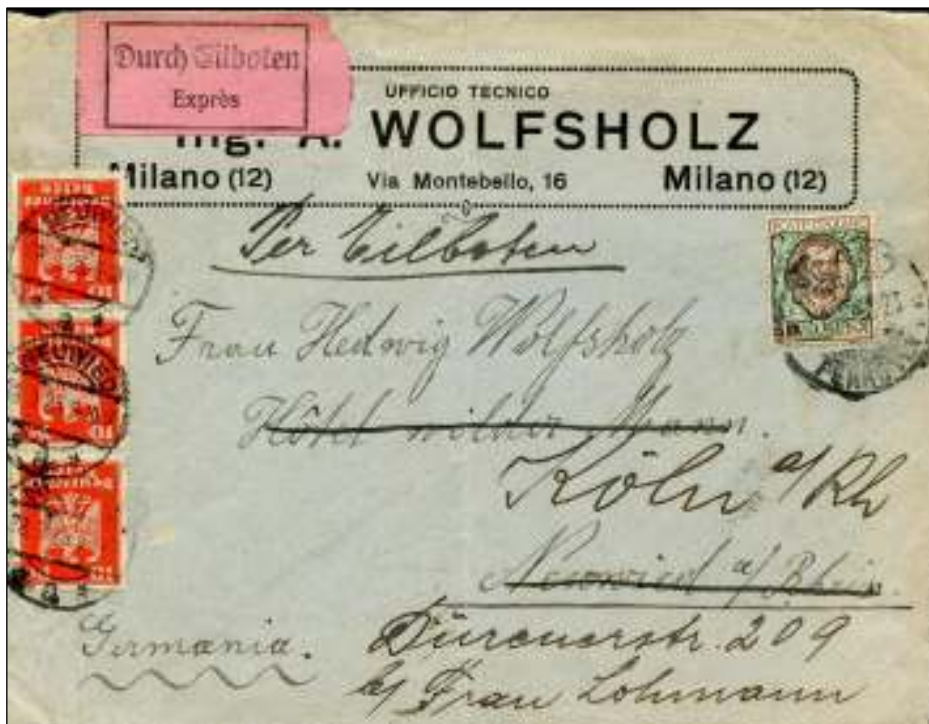 Durch Eilboten
Exprès
UFFICIO TECNICO
Ing. A. WOLFSHOLZ
Milano (12) Via Montebello, 16 Milano (12)
Per Eilboten
Frau Hedwig Wolfsholz
Hôtel wilder Mann.
Köln a/Rh
Neuwied a/Rhein
Germania.
Dürenerstr. 209
b/ Frau Lohmann
NEUWIED